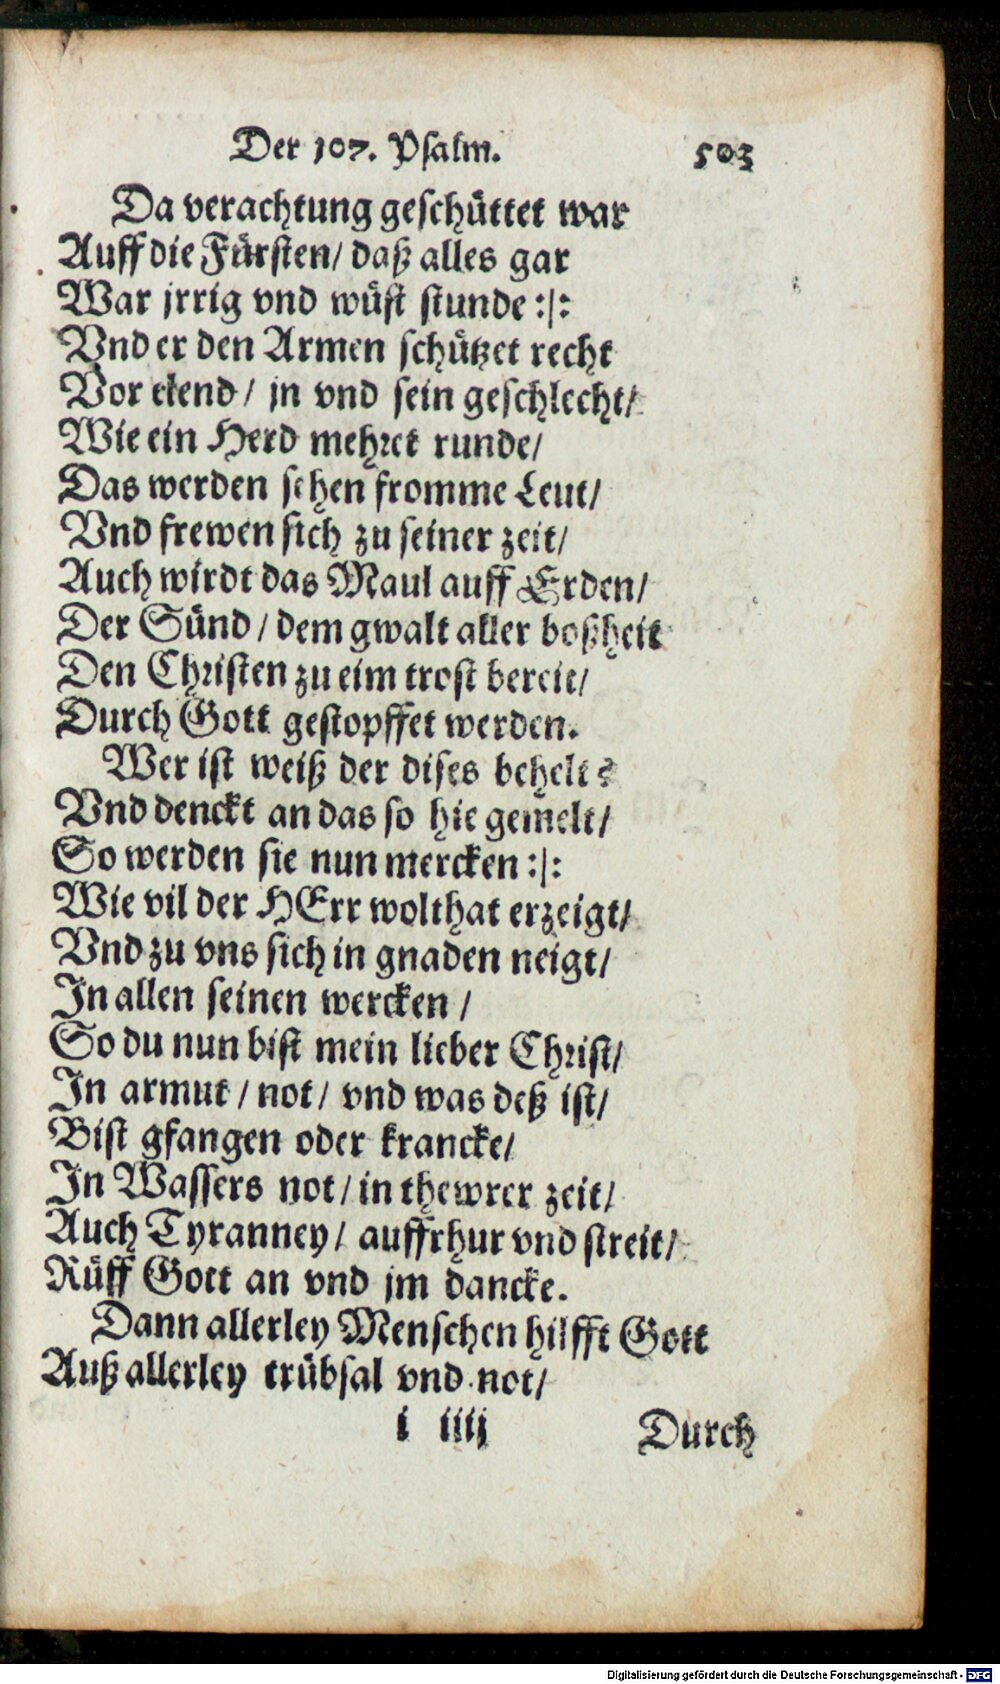 Der 107. Psalm. 503
Da verachtung geschüttet war
Auff die Fürsten/ daß alles gar
War jrrig vnd wüst stunde :|:
Vnd er den Armen schützet recht
Vor elend/ jn vnd sein geschlecht/
Wie ein Herd mehret runde/
Das werden sehen fromme Leut/
Vnd frewen sich zu seiner zeit/
Auch wirdt das Maul auff Erden/
Der Sünd/ dem gwalt aller boßheit
Den Christen zu eim trost bereit/
Durch Gott gestopffet werden.
Wer ist weiß der dises behelt?
Vnd denckt an das so hie gemelt/
So werden sie nun mercken :|:
Wie vil der HErr wolthat erzeigt/
Vnd zu vns sich in gnaden neigt/
In allen seinen wercken/
So du nun bist mein lieber Christ/
In armut/ not/ vnd was deß ist/
Bist gfangen oder krancke/
In Wassers not/ in thewrer zeit/
Auch Tyranney/ auffrhur vnd streit/
Rüff Gott an vnd jm dancke.
Dann allerley Menschen hilfft Gott
Auß allerley trübsal vnd not/
i iiij Durch
Digitalisierung gefördert durch die Deutsche Forschungsgemeinschaft - DFG